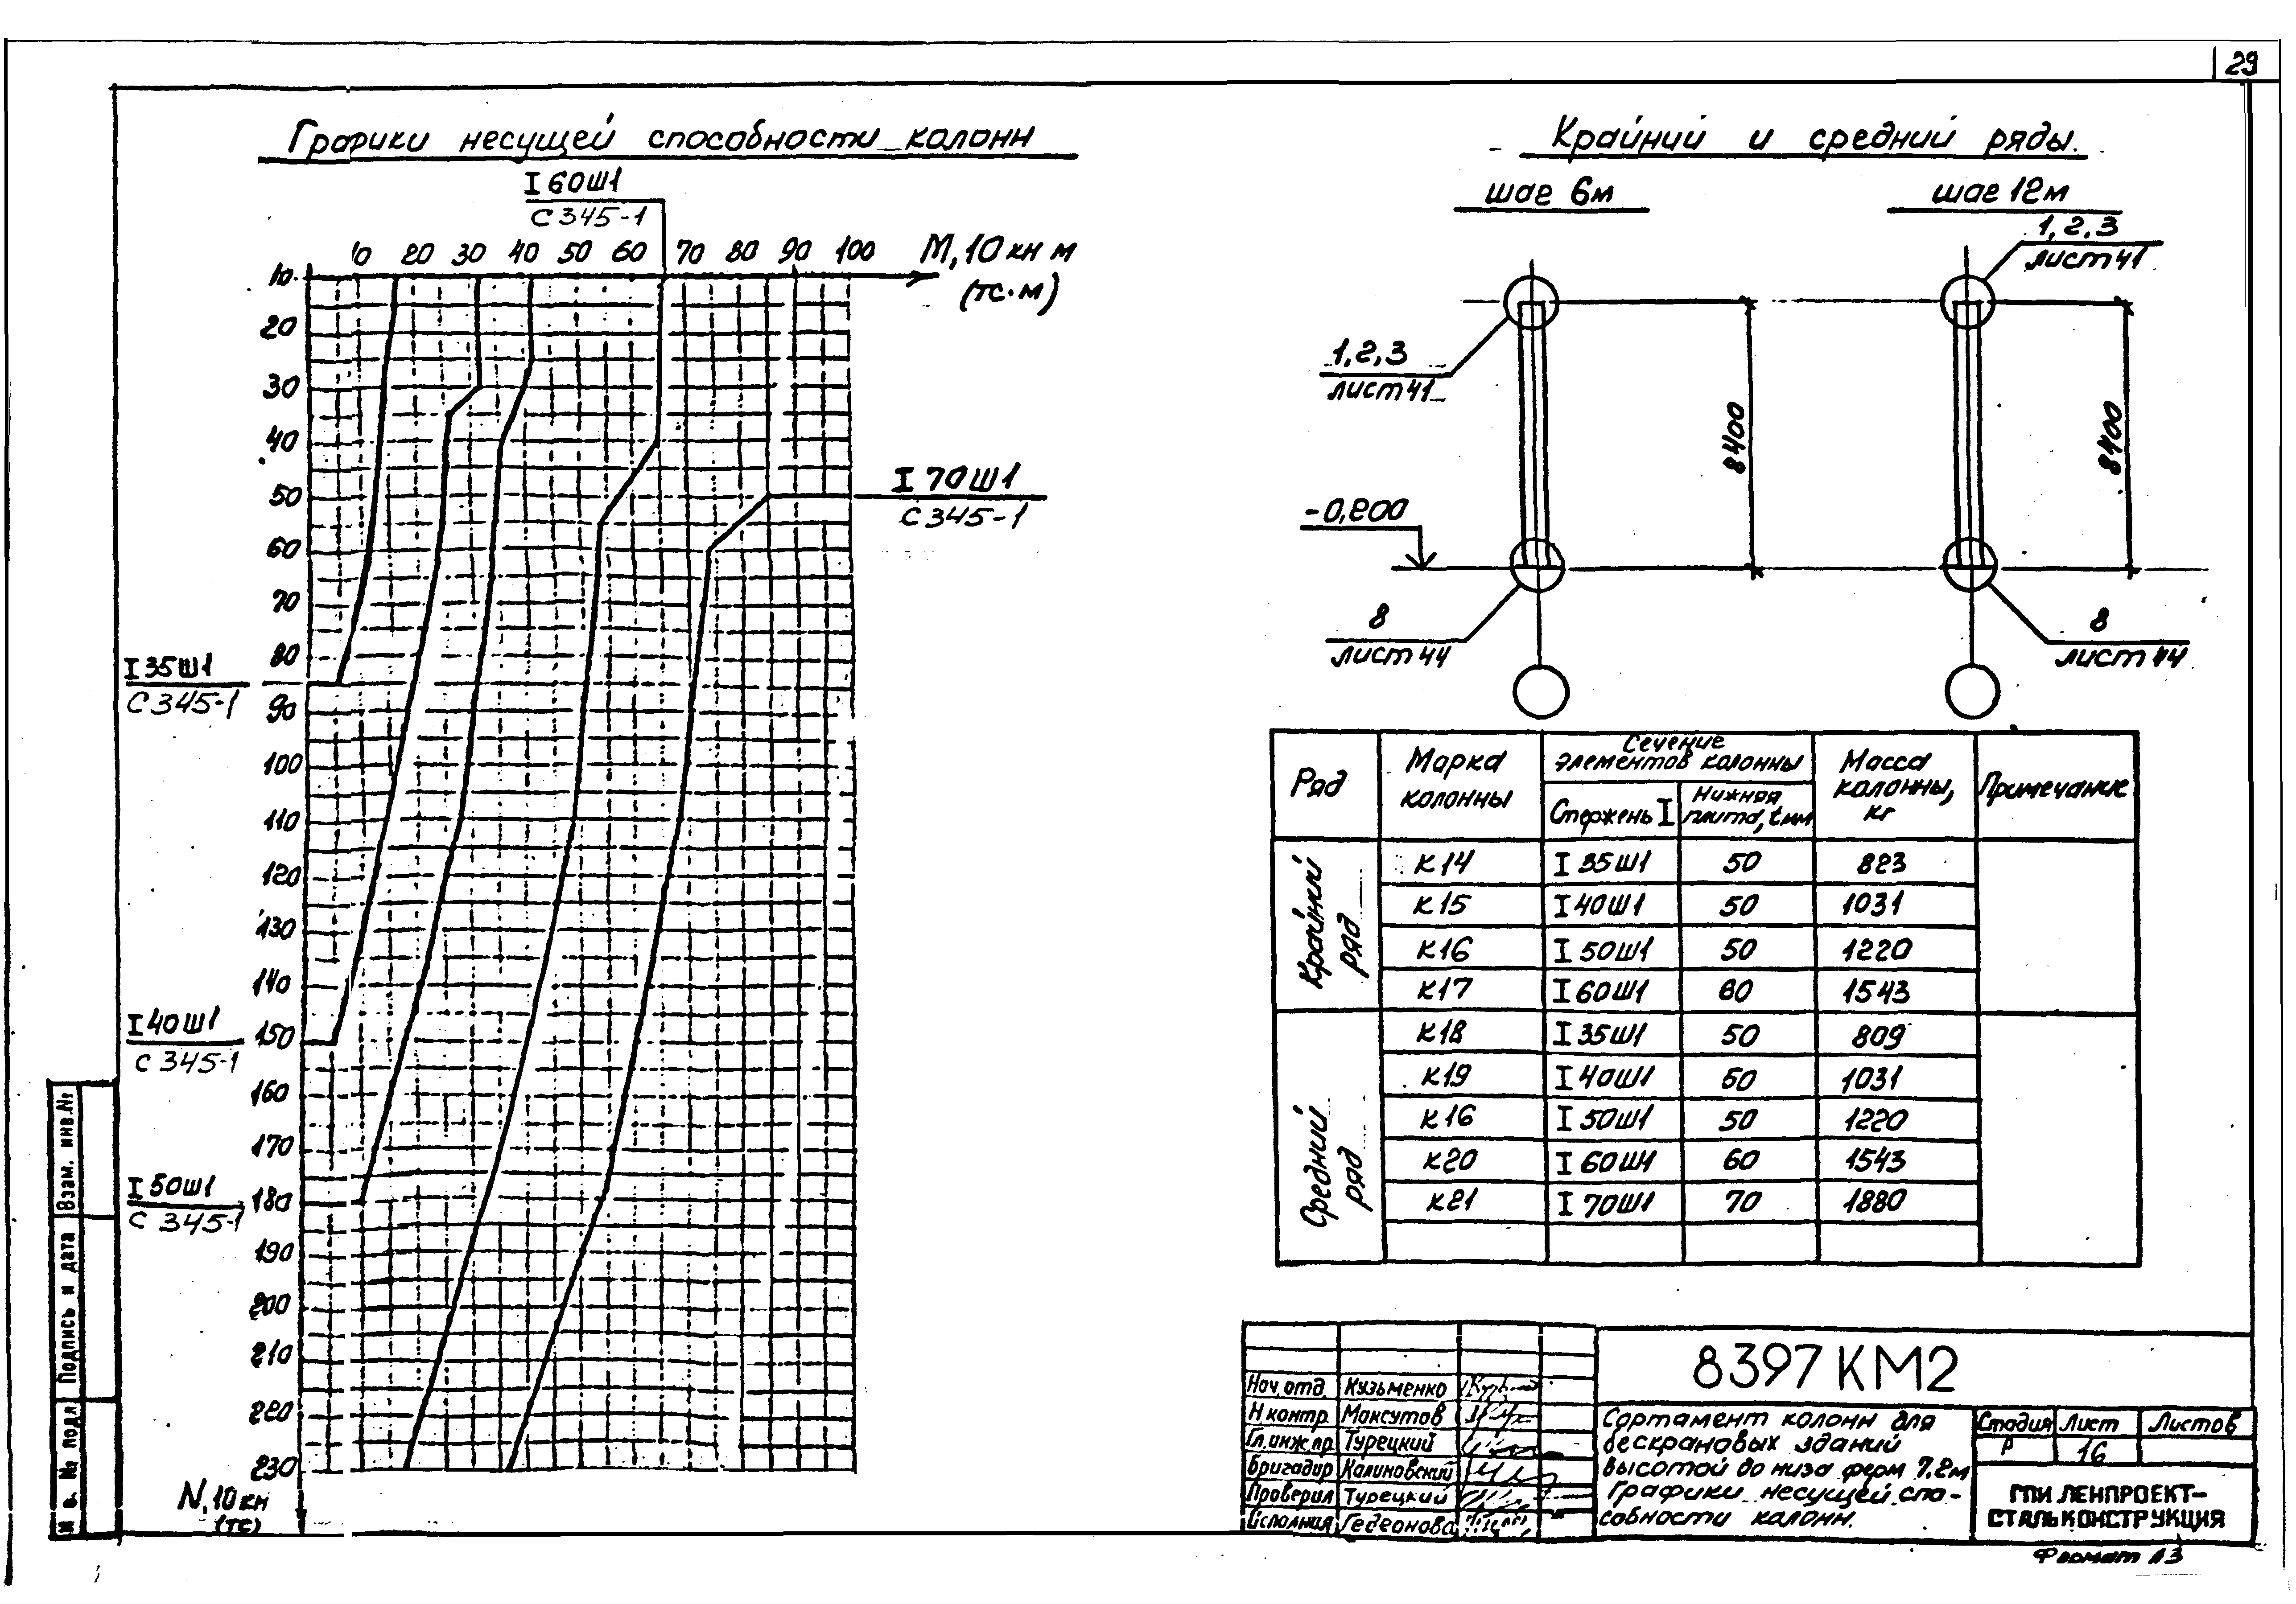 29
Графики несущей способности колонн
I 60Ш1
С 345-1
10 20 30 40 50 60 70 80 90 100 М, 10 кн м
(тс·м)
10
20
30
40
50
60
70
80
90
100
110
120
130
140
150
160
170
180
190
200
210
220
230
N, 10 кн
(тс)
I 70Ш1
С 345-1
I 35Ш1
С 345-1
I 40Ш1
С 345-1
I 50Ш1
С 345-1
Крайний и средний ряды.
шаг 6м
шаг 12м
1,2,3
лист 41
1,2,3
лист 41
8400
8400
-0,200
8
лист 44
8
лист 44
Ряд
Марка колонны
Сечение элементов колонны
Стержень I
Нижняя плита, t мм
Масса колонны, кг
Примечание
Крайний ряд
К14 I 35Ш1 50 823
К15 I 40Ш1 50 1031
К16 I 50Ш1 50 1220
К17 I 60Ш1 60 1543
Средний ряд
К18 I 35Ш1 50 809
К19 I 40Ш1 50 1031
К16 I 50Ш1 50 1220
К20 I 60Ш1 60 1543
К21 I 70Ш1 70 1880
8397 КМ2
Нач. отд. Кузьменко
Н контр. Максутов
Гл. инж. пр. Турецкий
Бригадир Калиновский
Проверил Турецкий
Исполнил Гедеонова
Сортамент колонн для
бескрановых зданий
высотой до низа ферм 7,2м
Графики несущей спо-
собности колонн.
Стадия Лист Листов
Р 16
ГПИ ЛЕНПРОЕКТ-
СТАЛЬКОНСТРУКЦИЯ
Формат А3
Взам. инв. №
Подпись и дата
№ подл